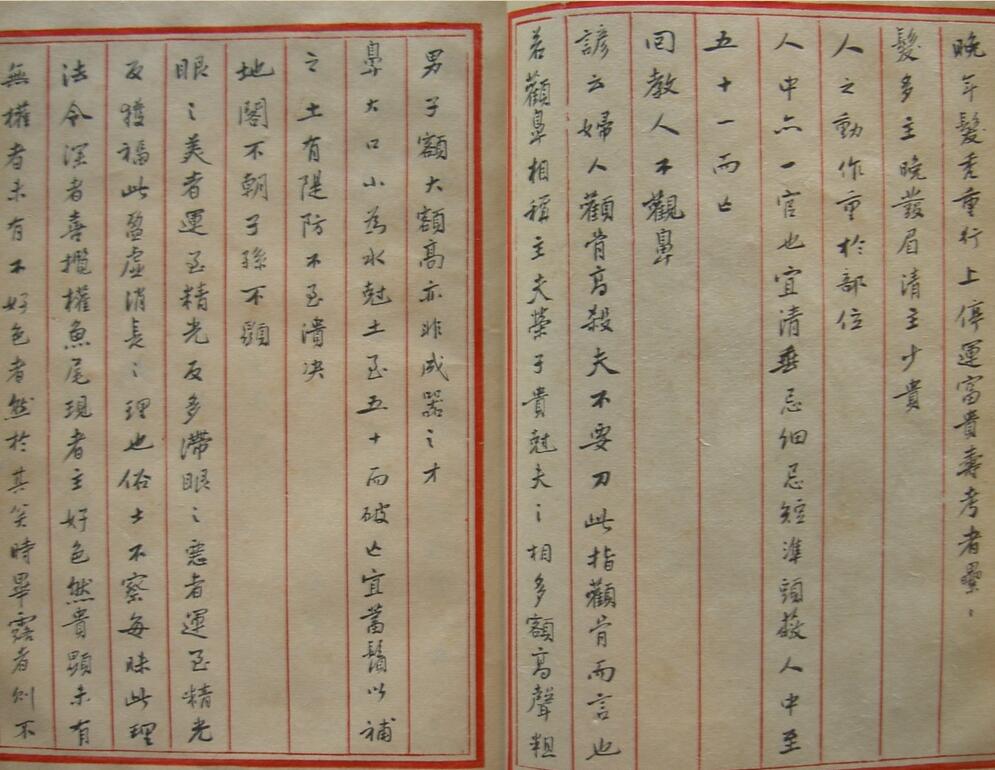 晚年髮禿重行上停運富貴壽考者纍〻
髮多主晚發眉清主少貴
人之動作重於部位
人中亦一官也宜清垂忌細忌短準頭蔽人中至
五十一而亡
回教人不觀鼻
諺云婦人顴骨高殺夫不要刀此指顴骨而言也
若顴鼻相稱主夫榮子貴尅夫之相多額高聲粗
男子額大額高亦非成器之才
鼻大口小為水尅土至五十而破亡宜蓄鬚以補
之土有隄防不至潰決
地閣不朝子孫不顯
眼之美者運至精光反多滯眼之惡者運至精光
反獲福此盈虛消長之理也俗士不察每昧此理
法令深者喜攬權魚尾現者主好色然貴顯未有
無權者未有不好色者然於其笑時畢露者則不